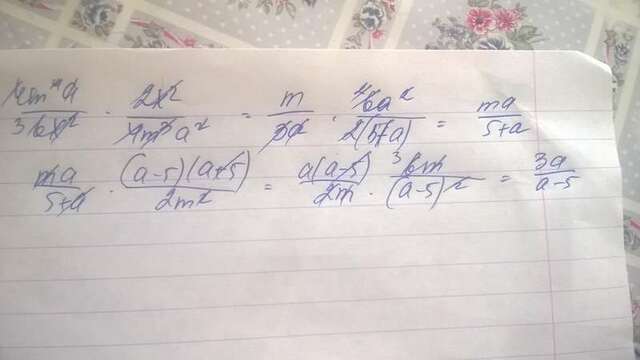 4m⁴a/36x² · 2x²/4m³a² = m/3a · 6a²/2(5+a) = ma/5+a
ma/5+a · (a-5)(a+5)/2m² = a(a-5)/2m · 6m/(a-5)² = 3a/a-5